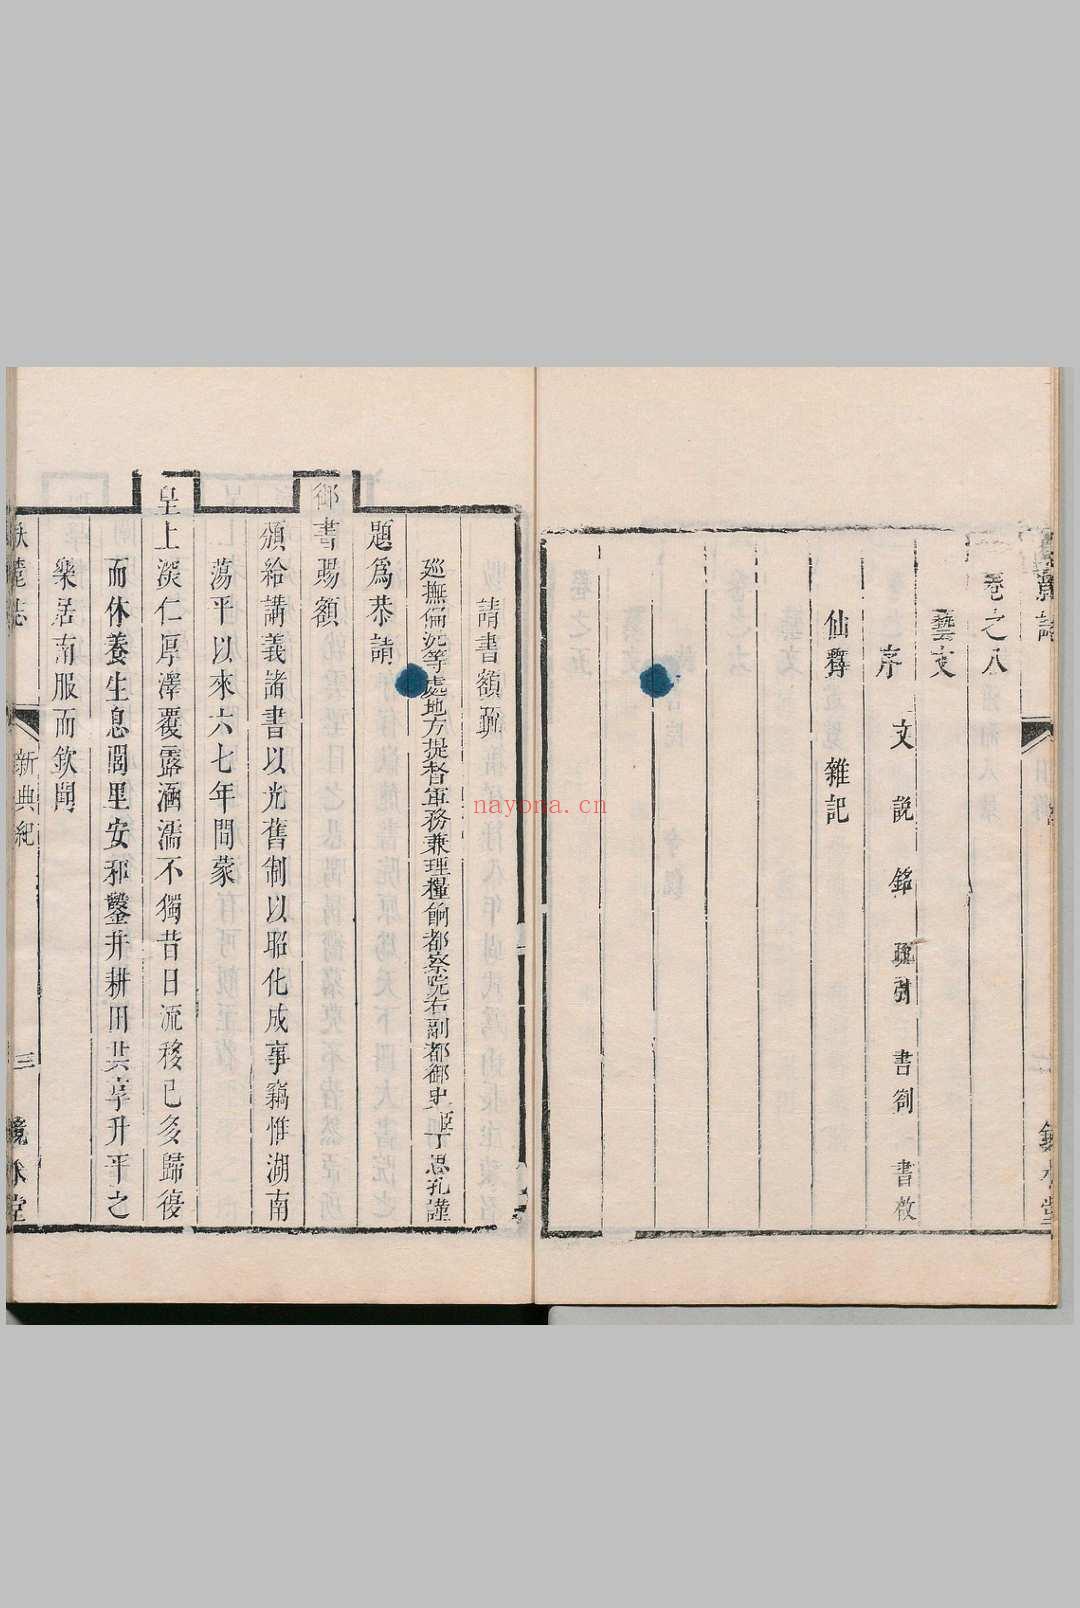 卷之八
藝文
序 文 説 銘 疏引 書劄 書啟
仙釋 雜記
請書額疏
廵撫偏沅等處地方提督軍務兼理糧餉都察院右副都御史臣丁思孔謹
題為恭請
御書賜額
頒給講義諸書以光舊制以昭化成事竊惟湖南
蕩平以來六七年間蒙
皇上深仁厚澤覆露涵濡不獨昔日流移已多歸復
而休養生息閭里安邪鑿井耕田共享升平之
樂居南服而欽聞
麓志
新典紀
三
鏡水堂
nayona.cn